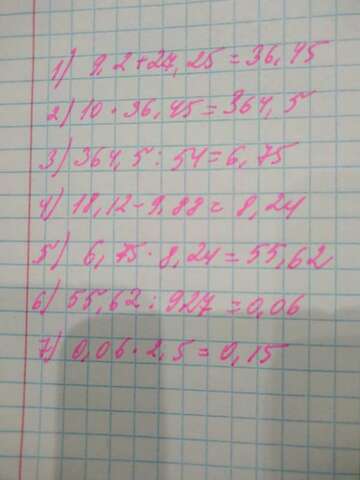 1) 9,2+27,25=36,45
2) 10·36,45=364,5
3) 364,5:54=6,75
4) 18,12-9,88=8,24
5) 6,75·8,24=55,62
6) 55,62:927=0,06
7) 0,06·2,5=0,15